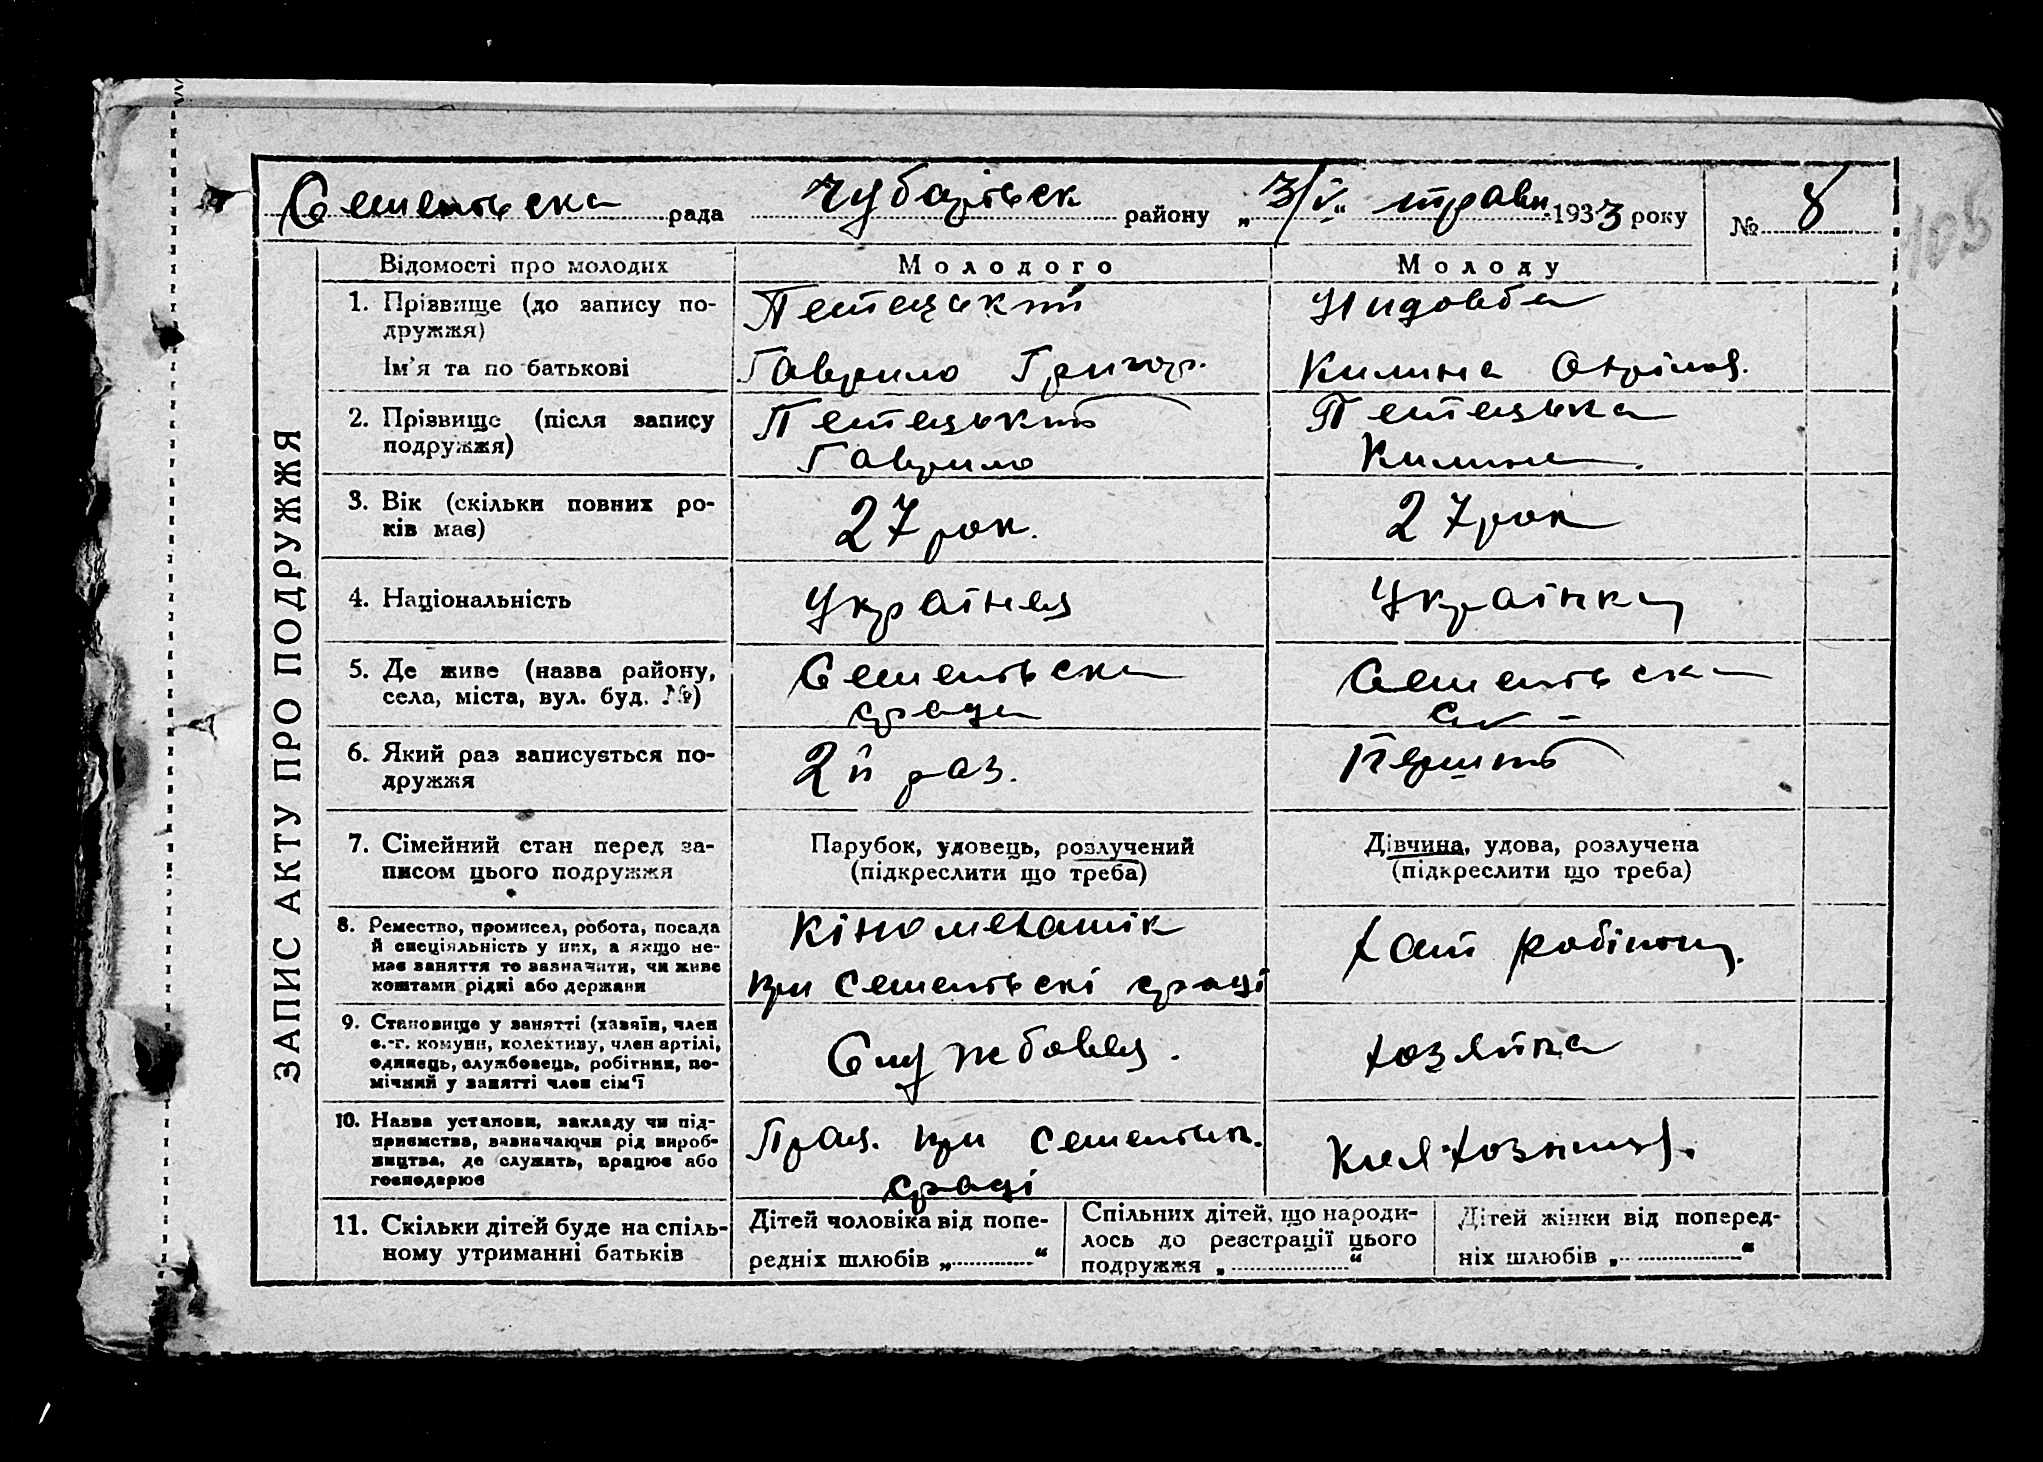 Семенівська рада Чубарівськ району „3/V“ травн 1933 року № 8
105
ЗАПИС АКТУ ПРО ПОДРУЖЖЯ
Відомості про молодих
Молодого
Молоду
1. Прізвище (до запису по-
дружжя)
Ім'я та по батькові
Гаврило Григор.
Килина
2. Прізвище (після запису
подружжя)
Гаврило
Килина.
3. Вік (скільки повних ро-
ків має)
27 рок.
27 рок
4. Національність
Українец
Українка
5. Де живе (назва району,
села, міста, вул. буд. №)
Семенівська
срада
Семенівська
6. Який раз записується по-
дружжя
2й раз.
Перший
7. Сімейний стан перед за-
писом цього подружжя
Парубок, удовець, розлучений
(підкреслити що треба)
Дівчина, удова, розлучена
(підкреслити що треба)
8. Ремество, промисел, робота, посада
й спеціяльність у них, а якщо не-
має заняття то зазначити, чи живе
коштами рідні або держави
Кіномеханік
при Семенівскі сраді
хат робітниц.
9. Становище у занятті (хазяїн, член
с.-г. комуни, колективу, член артілі,
одинець, службовець, робітник, по-
мічний у занятті член сім'ї
Службовец.
хозяйка
10. Назва установи, закладу чи під-
приємства, зазначаючи рід вироб-
ництва, де служить, працює або
господарює
Прац. при Семенівк.
сраді
11. Скільки дітей буде на спіль-
ному утриманні батьків
Дітей чоловіка від попе-
редніх шлюбів „ “
Спільних дітей, що народи-
лось до реєстрації цього
подружжя „ “
Дітей жінки від поперед-
ніх шлюбів „ “